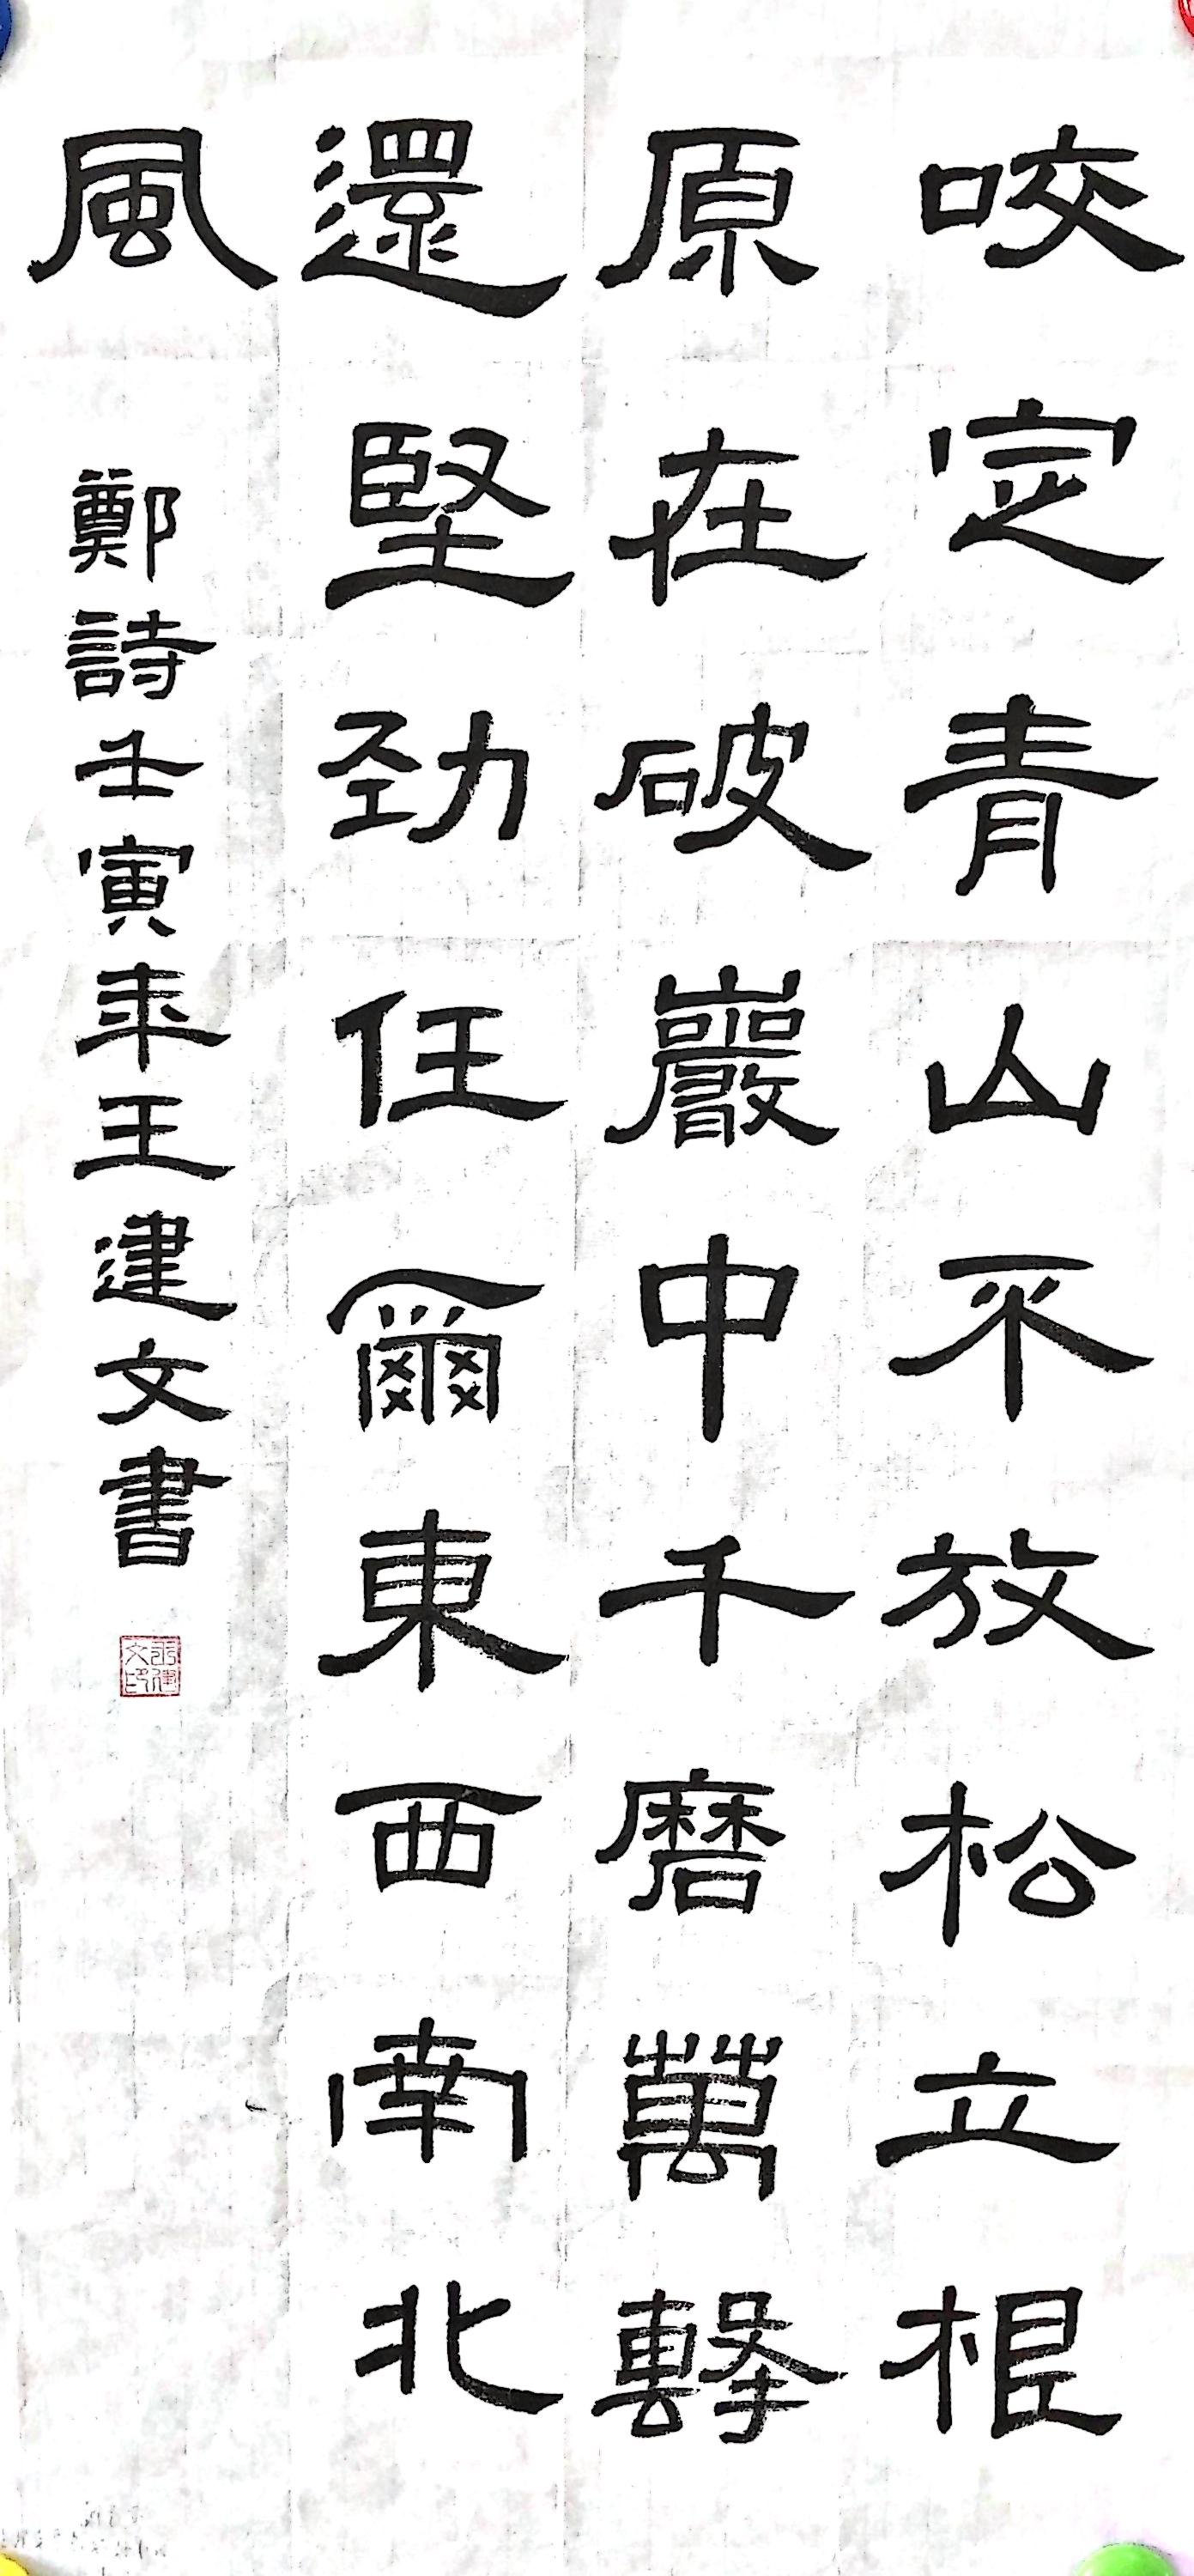 咬定青山不放松立根
原在破巖中千磨萬擊
還堅劲任爾東西南北
風
鄭詩壬寅年王建文書